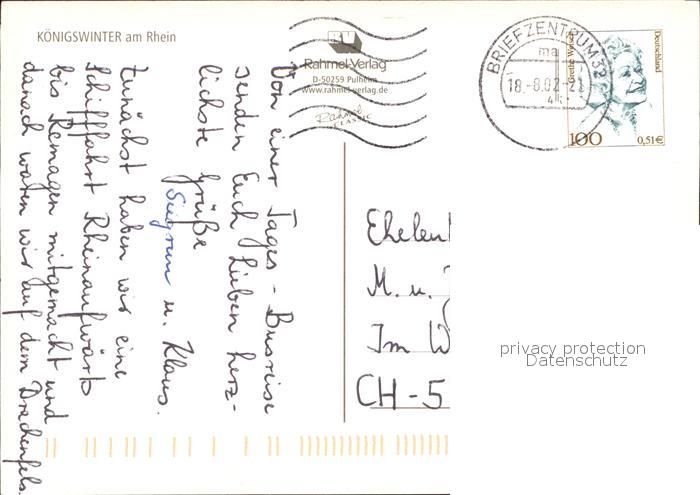 KÖNIGSWINTER am Rhein
RV
Rahmel-Verlag
D-50259 Pulheim
www.rahmel-verlag.de
Rahmel
CLASSIC
BRIEFZENTRUM 32
ma
18.-8.02-21
Deutschland
100
0,51€
Von einer Tages-Busreise
senden Euch Lieben herz-
lichste Grüße
Siegrun u. Klaus.
Zunächst haben wir eine
Schifffahrt Rheinaufwärts
bis Remagen mitgemacht und
danach waren wir auf dem Drachenfels.
M. u.
Im W
CH-5
privacy protection
Datenschutz